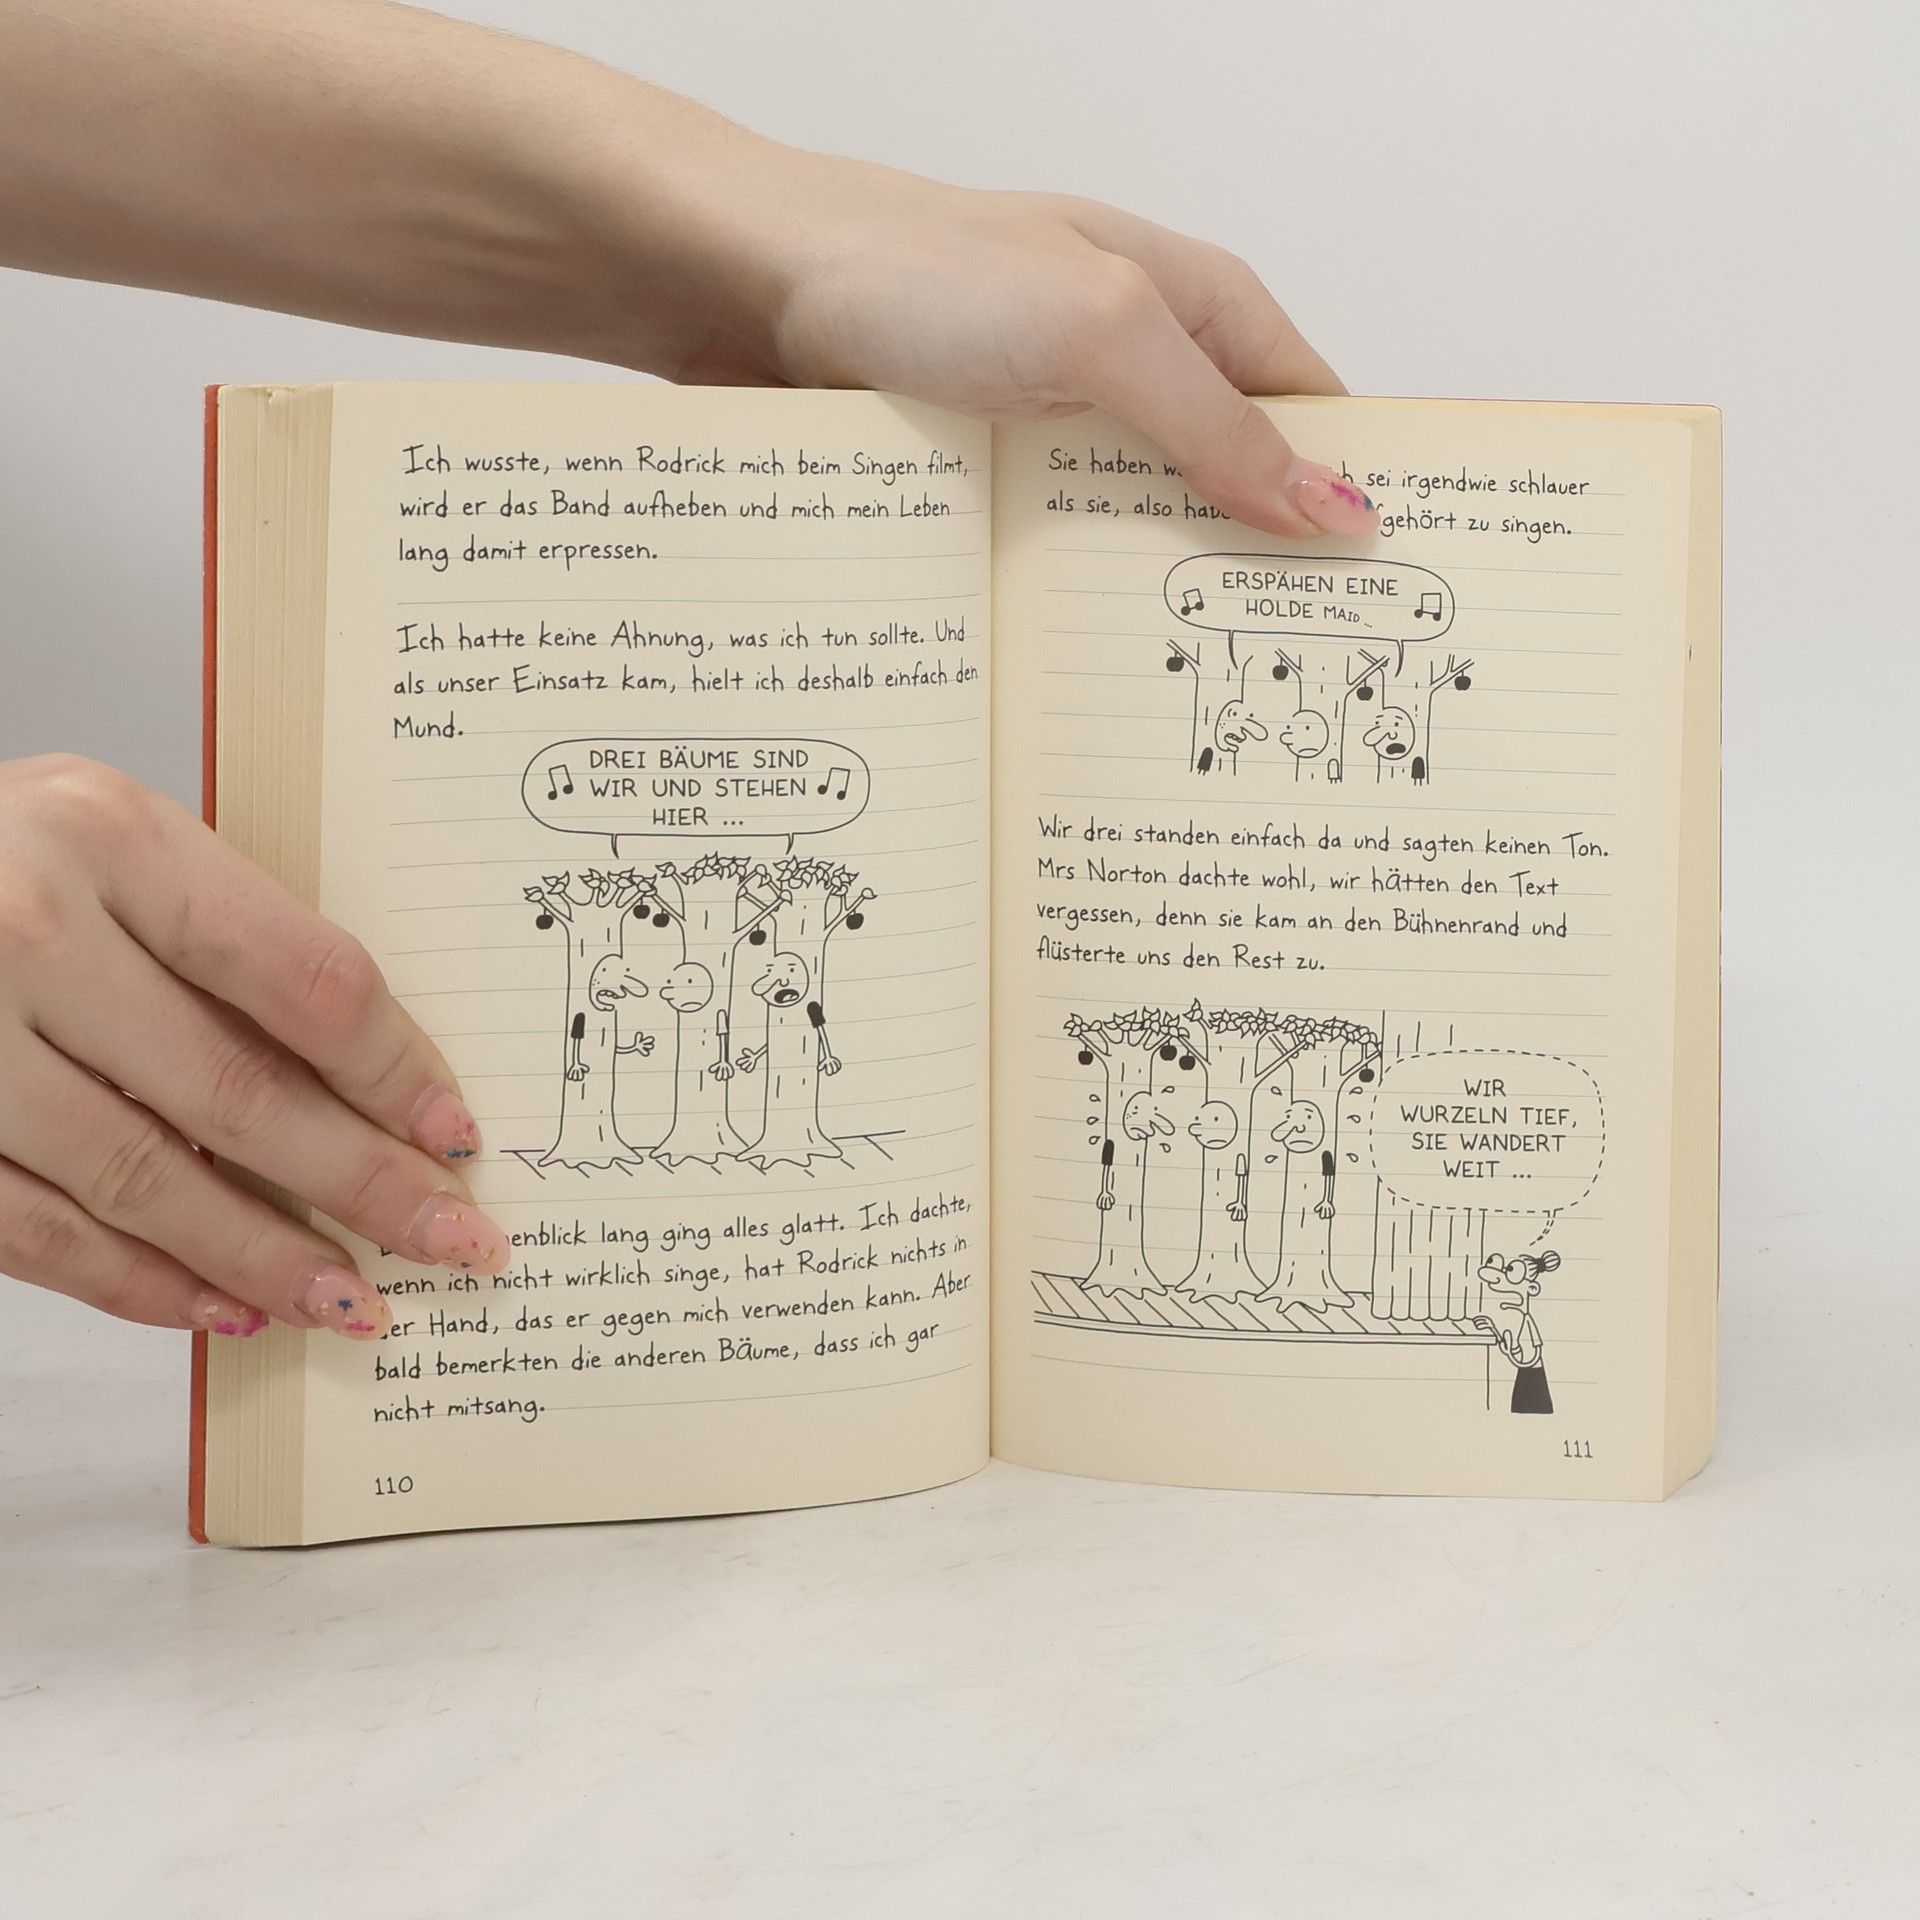 Ich wusste, wenn Rodrick mich beim Singen filmt,
wird er das Band aufheben und mich mein Leben
lang damit erpressen.
Ich hatte keine Ahnung, was ich tun sollte. Und
als unser Einsatz kam, hielt ich deshalb einfach den
Mund.
DREI BÄUME SIND
WIR UND STEHEN
HIER ...
lang ging alles glatt. Ich dachte,
wenn ich nicht wirklich singe, hat Rodrick nichts in
Hand, das er gegen mich verwenden kann. Aber
bald bemerkten die anderen Bäume, dass ich gar
nicht mitsang.
110
Sie haben sei irgendwie schlauer
als sie, also zu singen.
ERSPÄHEN EINE
HOLDE MAID...
Wir drei standen einfach da und sagten keinen Ton.
Mrs Norton dachte wohl, wir hätten den Text
vergessen, denn sie kam an den Bühnenrand und
flüsterte uns den Rest zu.
WIR
WURZELN TIEF,
SIE WANDERT
WEIT ...
111